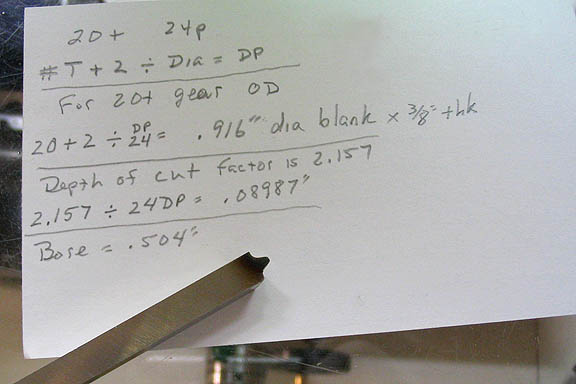 20t 24p
#T+2 ÷ Dia = DP
For 20t gear OD
20+2 ÷ DP 24 = .916" dia blank x 3/8" thk
Depth of cut factor is 2.157
2.157 ÷ 24DP = .08987"
Bore = .504"